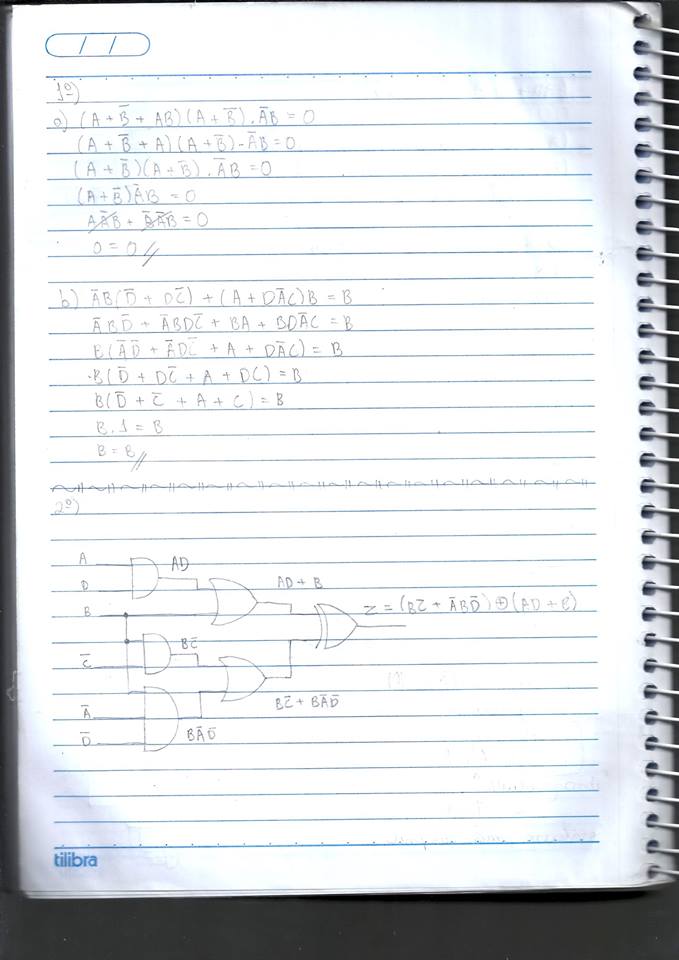 / /
1º)
a) (A + B̅ + AB)(A + B̅) . A̅B = 0
(A + B̅ + A)(A + B̅) - A̅B = 0
(A + B̅)(A + B̅) . A̅B = 0
(A + B̅)A̅B = 0
AA̅B + B̅A̅B = 0
0 = 0 //
b) A̅B(D̅ + DC̅) + (A + DA̅C)B = B
A̅BD̅ + A̅BDC̅ + BA + BDA̅C = B
B(A̅D̅ + A̅DC̅ + A + DA̅C) = B
B(D̅ + DC̅ + A + DC) = B
B(D̅ + C̅ + A + C) = B
B . 1 = B
B = B //
2º)
A
AD
D
AD + B
B
Z = (BC̅ + A̅BD̅) ⊕ (AD + B)
BC̅
C̅
BC̅ + BA̅D̅
A̅
D̅
BA̅D̅
tilibra